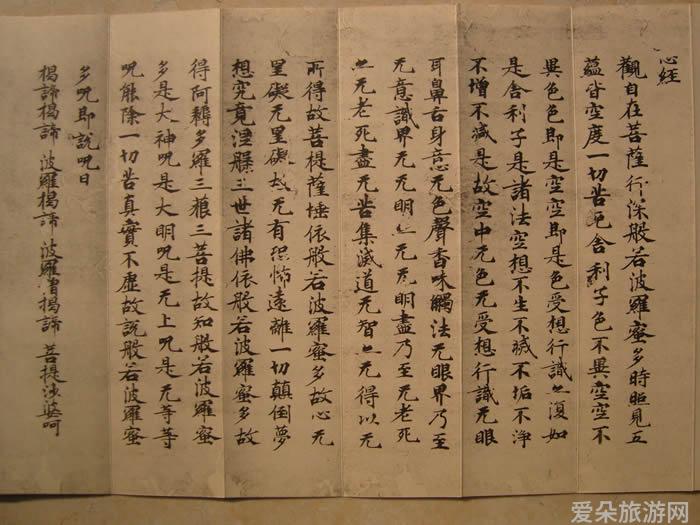 心経
觀自在菩薩行深般若波羅蜜多時照見五
蘊皆空度一切苦厄舍利子色不異空空不
異色色即是空空即是色受想行識亦復如
是舍利子是諸法空想不生不滅不垢不淨
不增不減是故空中无色无受想行識无眼
耳鼻舌身意无色聲香味觸法无眼界乃至
无意識界无无明亦无无明盡乃至无老死
亦无老死盡无苦集滅道无智亦无得以无
所得故菩提薩埵依般若波羅蜜多故心无
罣礙无罣礙故无有恐怖遠離一切顛倒夢
想究竟涅槃三世諸佛依般若波羅蜜多故
得阿耨多羅三藐三菩提故知般若波羅蜜
多是大神呪是大明呪是无上呪是无等等
呪能除一切苦真實不虛故說般若波羅蜜
多呪即說呪曰
揭諦揭諦 波羅揭諦 波羅僧揭諦 菩提沙婆呵
爱朵旅游网